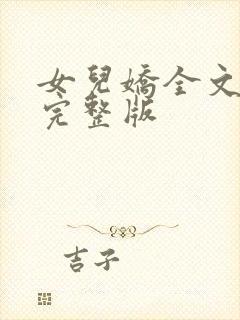 女兒嬌全文
完整版
吉子